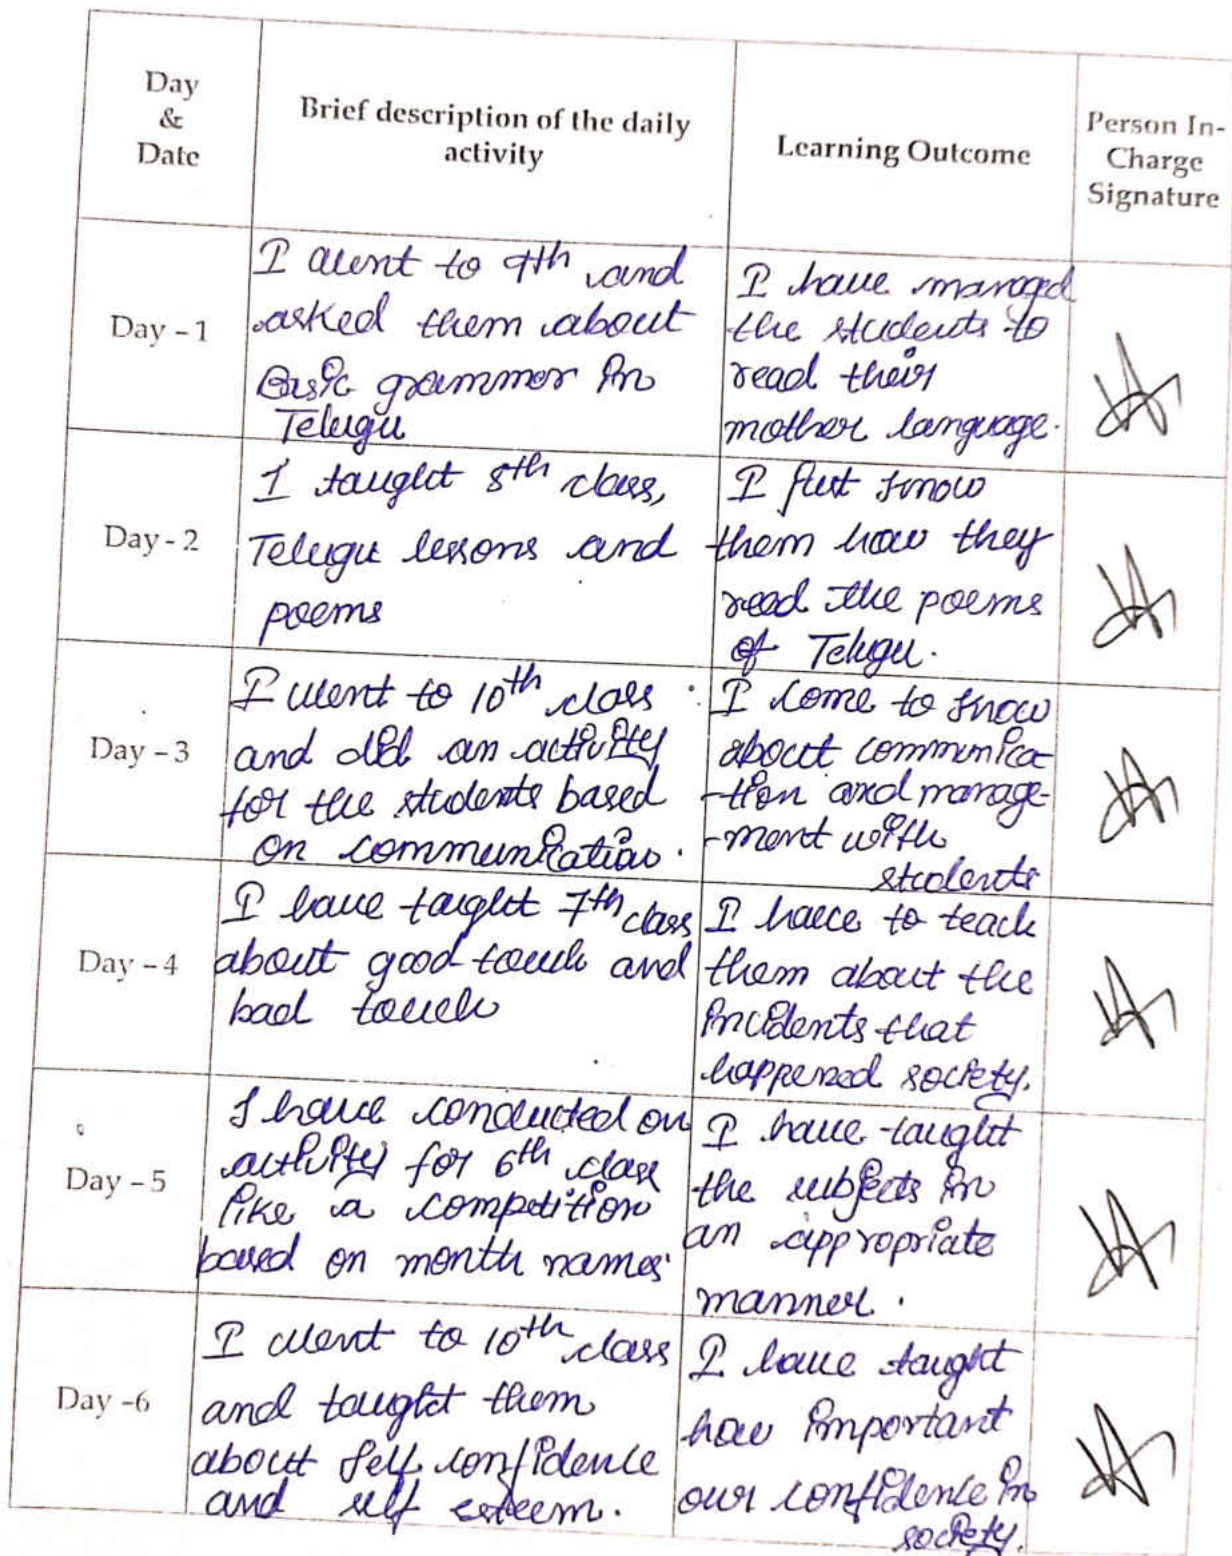 Day
&
Date
Brief description of the daily
activity
Learning Outcome
Person In-
Charge
Signature
Day - 1
I went to 9th and
asked them about
Basic grammer in
Telugu
I have managed
the students to
read their
mother language.
Day - 2
I taught 8th class,
Telugu lessons and
poems
I just know
them how they
read the poems
of Telugu.
Day - 3
I went to 10th class
and did an activity
for the students based
on communication.
I come to know
about communica
-tion and manage-
-ment with
students
Day - 4
I have taught 7th class
about good touch and
bad touch
I have to teach
them about the
incidents that
happened society.
Day - 5
I have conducted an
activity for 6th class
like a competition
based on month names
I have taught
the subjects in
an appropriate
manner.
Day -6
I went to 10th class
and taught them
about self confidence
and self esteem.
I have taught
how important
our confidence in
society.